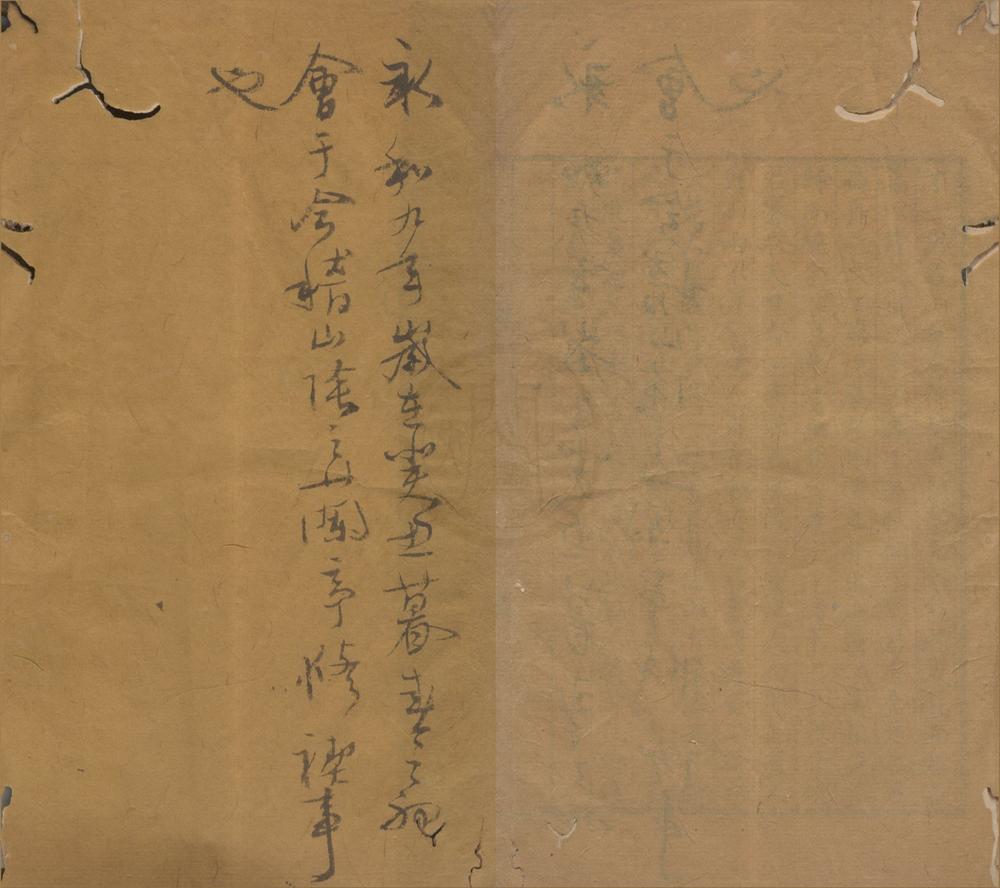 永和九年歲在癸丑暮春之初
會于會稽山陰之蘭亭脩禊事
也